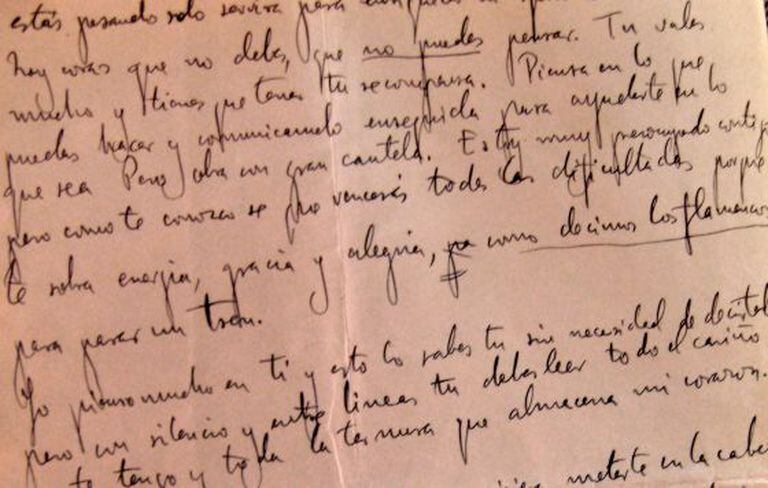 estás pasando solo servirá para
hay cosas que no debes, que no puedes pensar. Tu vales
mucho y tienes que tener tu recompensa. Piensa en lo que
puedas hacer y comunicamelo enseguida para ayudarte en lo
que sea Pero obra con gran cautela. Estoy muy preocupado contigo
pero como te conozco se que vencerás todas las dificultades porque
te sobra energia, gracia y alegria, como decimos los flamencos
para parar un tren.
Yo pienso mucho en ti y esto lo sabes tu sin necesidad de decirtelo
pero con silencio y entre lineas tu debes leer todo el cariño
te tengo y toda la ternura que almacena mi corazon.
meterte en la cabe